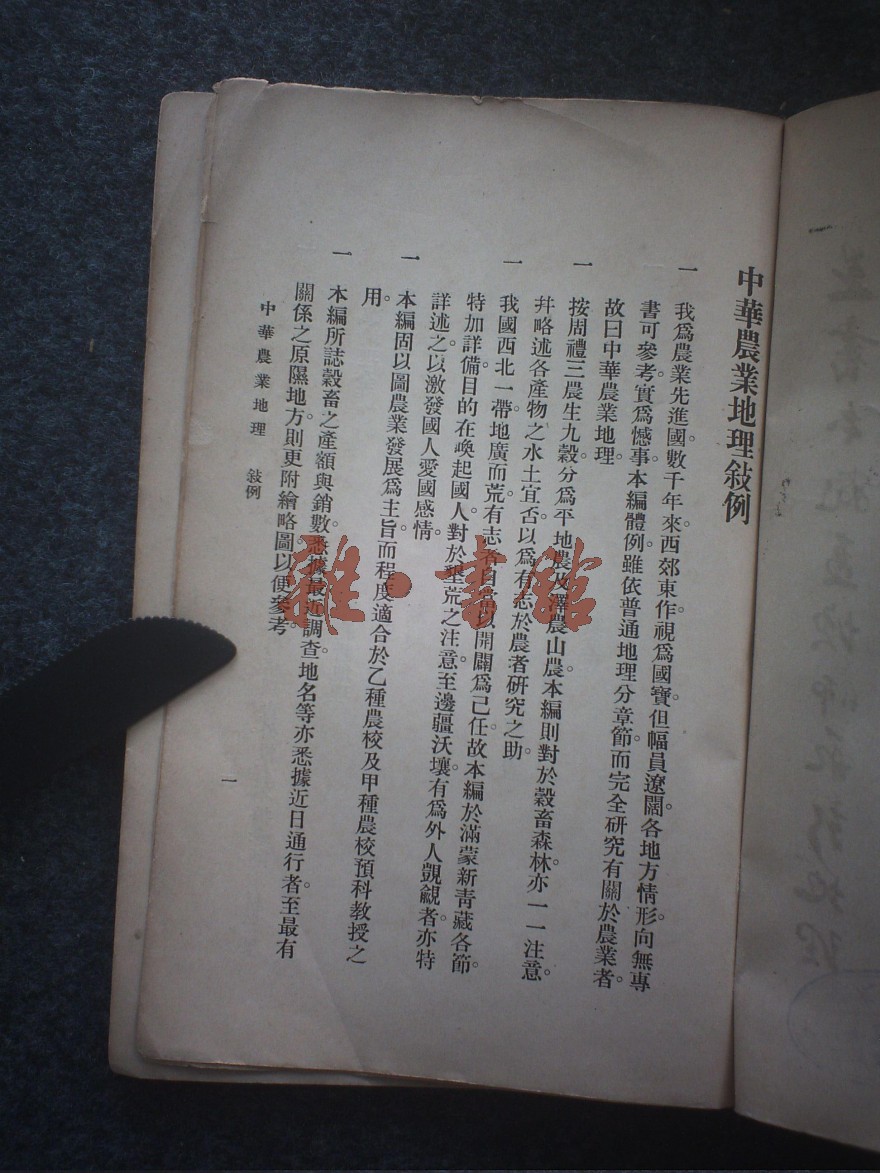 中華農業地理敍例
一 我爲農業先進國。數千年來西郊東作。視爲國寶。但幅員遼闊。各地方情形。向無專
書可參考。實爲憾事。本編體例。雖依普通地理分章節。而完全研究有關於農業者。
故曰中華農業地理
一 按周禮三農生九穀。分爲平地農及澤農山農。本編則對於穀畜森林。亦一一注意。
幷略述各產物之水土宜否。以爲有志於農者研究之助
一 我國西北一帶。地廣而荒。有志者自當以開闢爲己任。故本編於滿蒙新青藏各節。
特加詳備。目的在喚起國人對於墾荒之注意。至邊疆沃壤。有爲外人覬覦者。亦特
詳述之。以激發國人愛國感情。
一 本編固以圖農業發展爲主旨。而程度適合於乙種農校及甲種農校預科教授之
用。
一 本編所誌穀畜之產額與銷數。悉據最近調查。地名等亦悉據近日通行者。至最有
關係之原隰地方。則更附繪略圖。以便參考。
中華農業地理 敍例
一
雜·書館